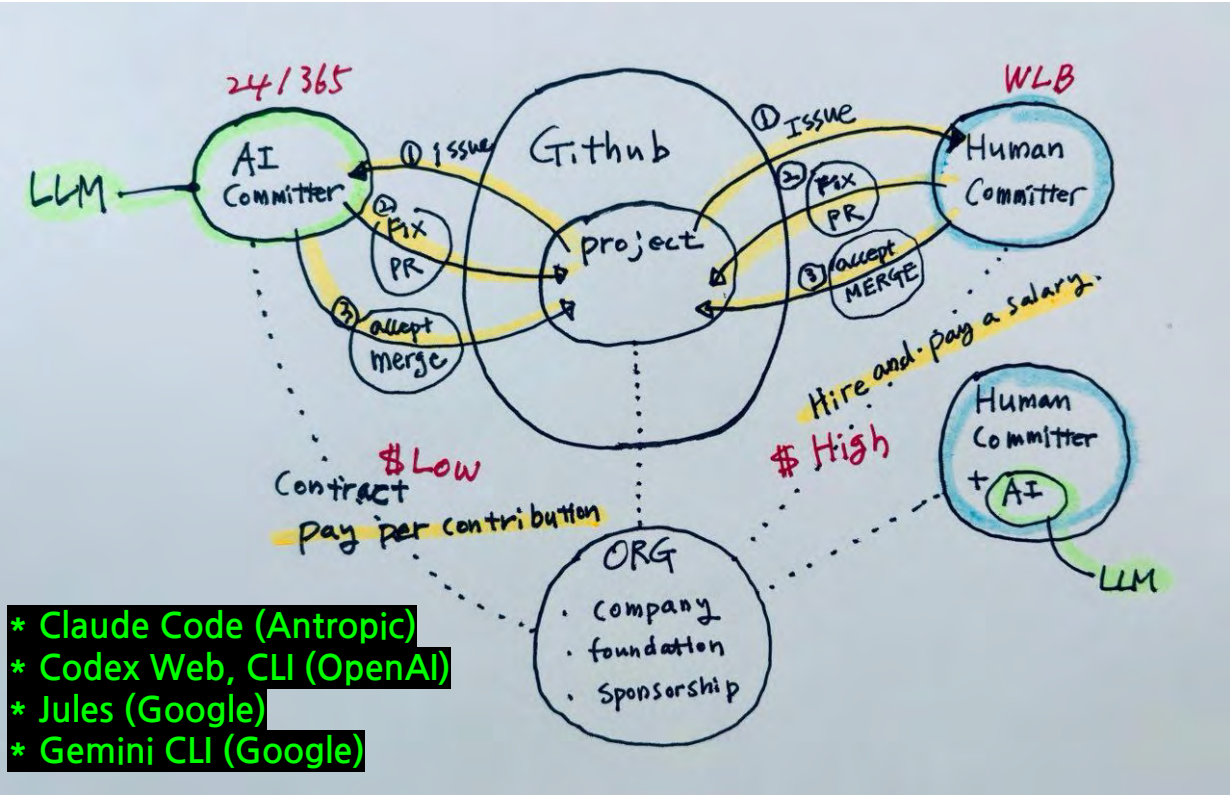 24/365
WLB
LLM
AI
Committer
① issue
② Fix
PR
③ accept
merge
Github
project
① Issue
② Fix
PR
③ accept
MERGE
Human
Committer
Hire and pay a salary.
$ High
$ Low
Contract
pay per contribution
Human
Committer
+ AI
LLM
ORG
· Company
· foundation
· Sponsorship
* Claude Code (Antropic)
* Codex Web, CLI (OpenAI)
* Jules (Google)
* Gemini CLI (Google)